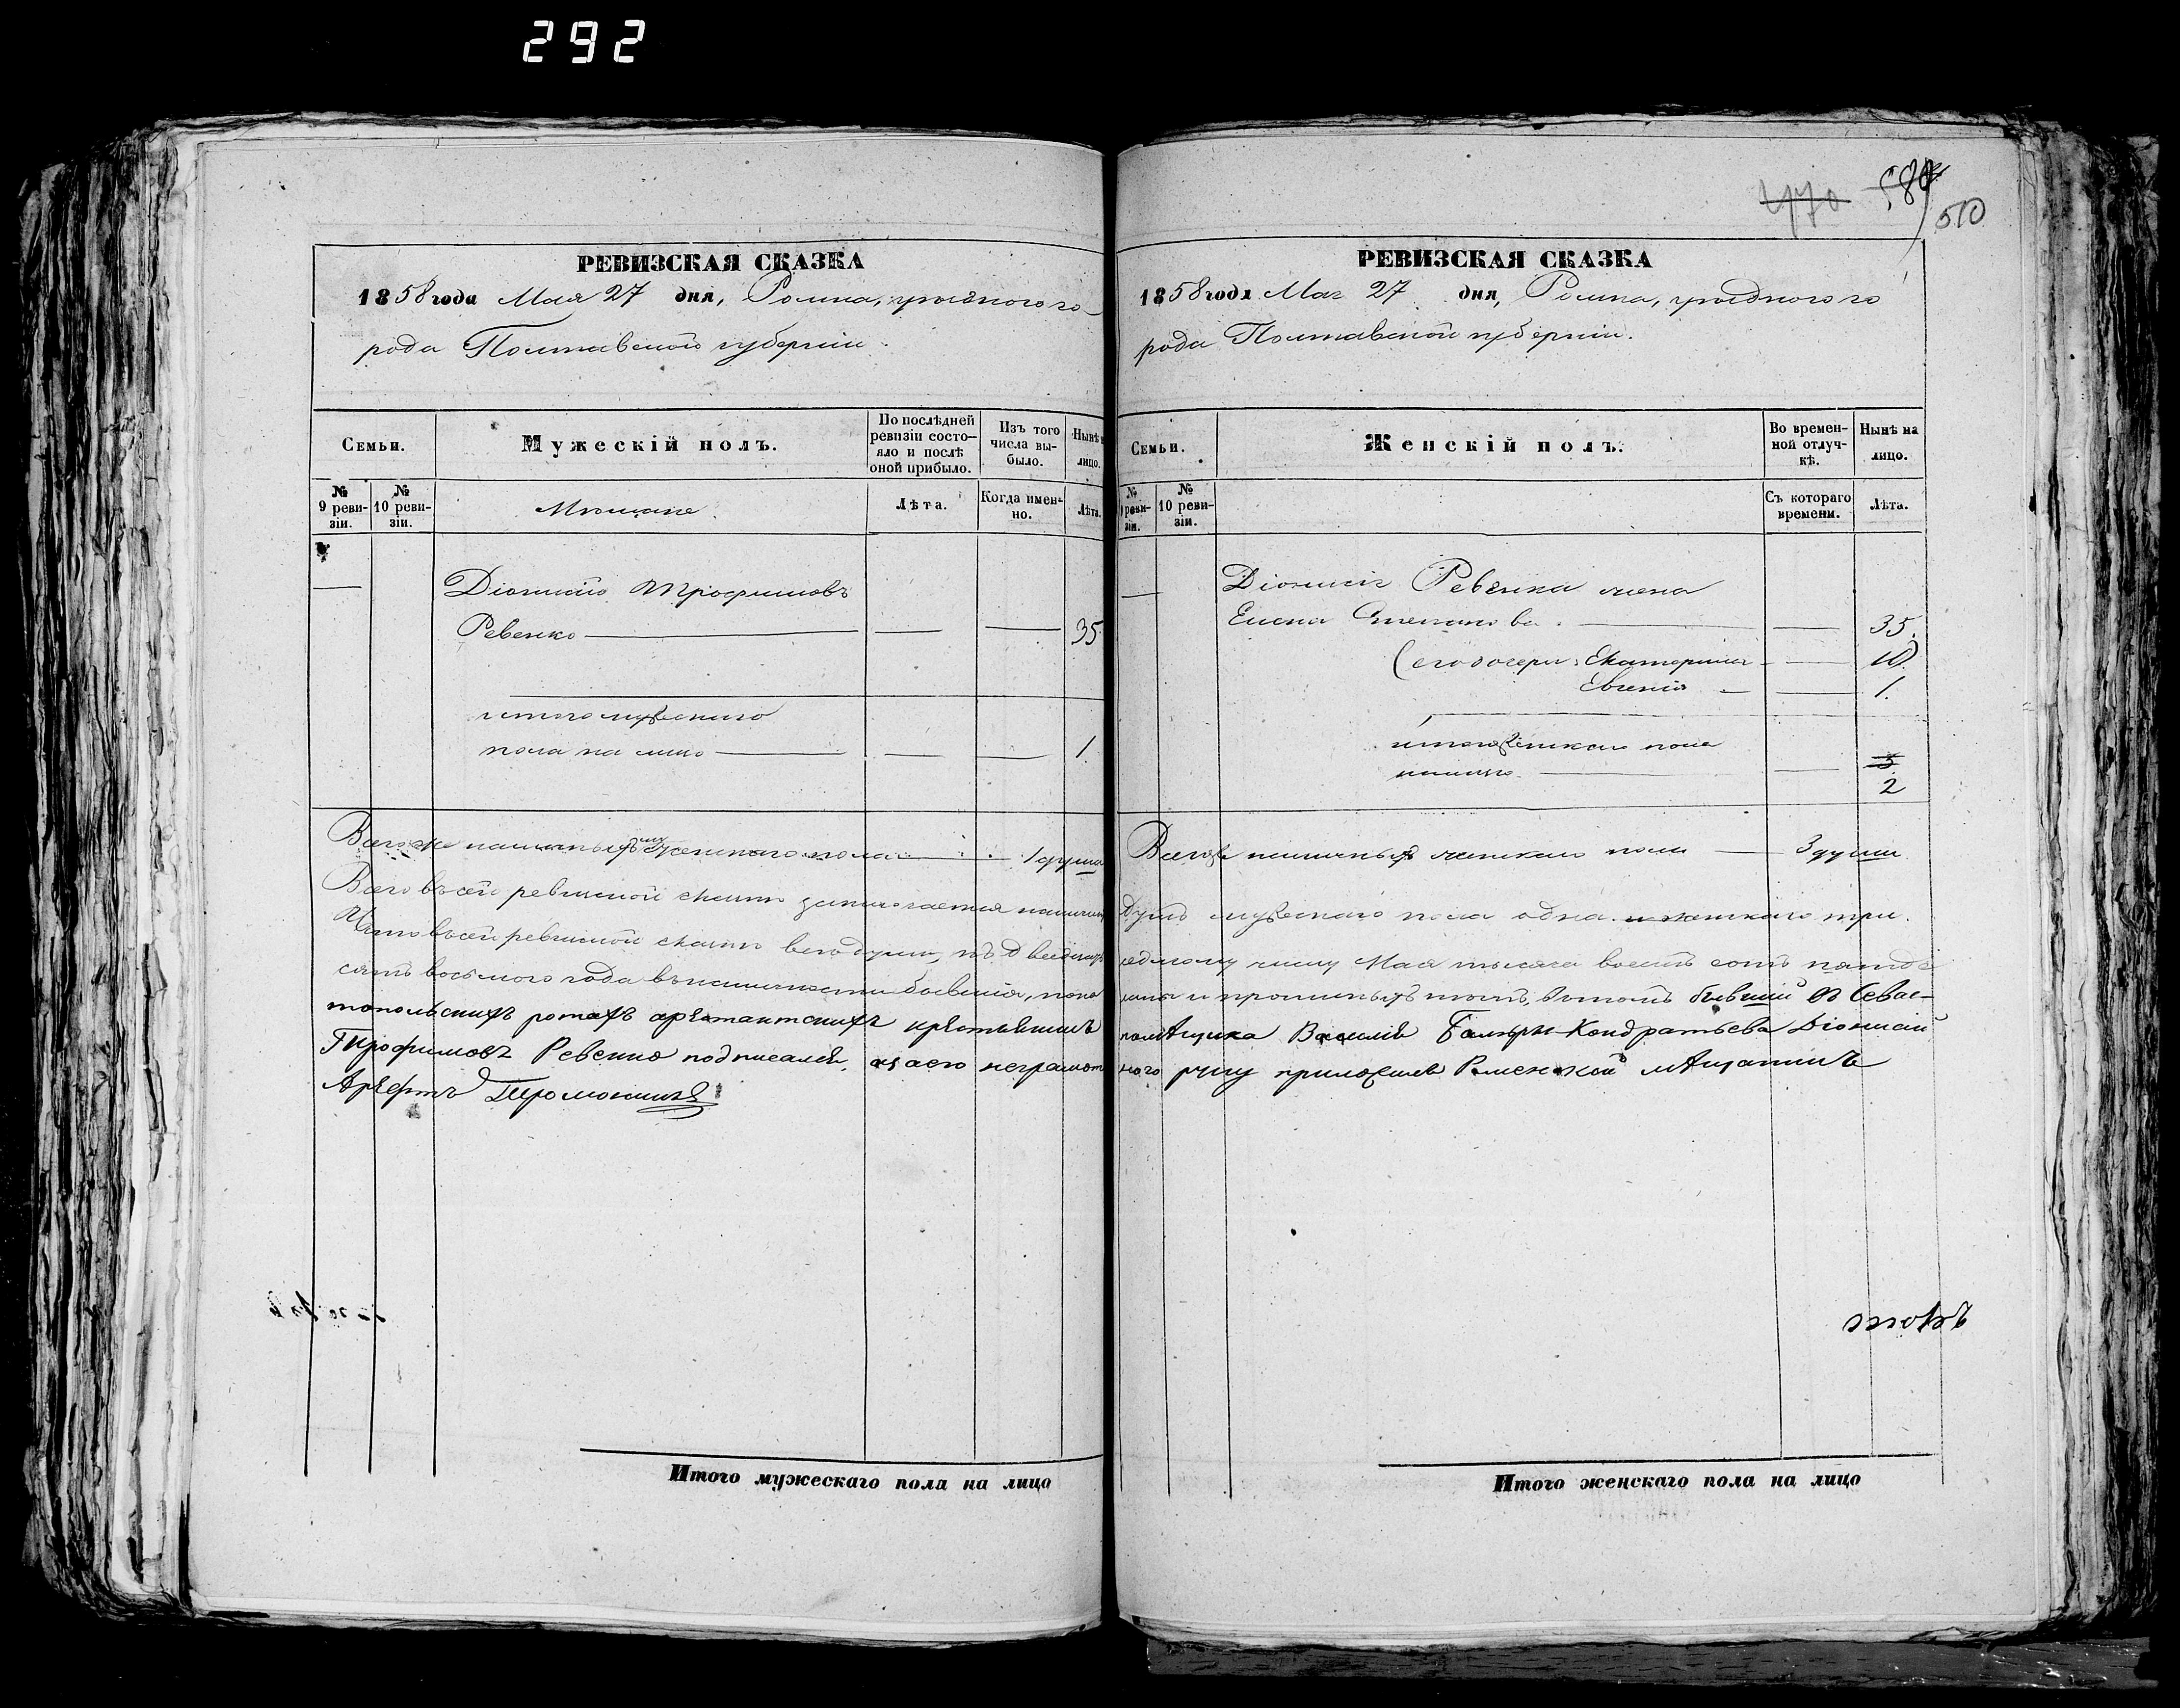 292
РЕВИЗСКАЯ СКАЗКА
1858 года Мая 27 дня, Ромна, уѣзднаго го-
рода Полтавской губерніи.
Семьи.
Мужескій полъ.
По послѣдней ревизіи состо-
яло и послѣ оной прибыло.
Изъ того числа вы-
было.
Нынѣ на лицо.
№ 9 реви-
зіи.
№ 10 реви-
зіи.
Мѣщане.
Лѣта.
Когда имен-
но.
Лѣта.
Діонисій Трофимовъ
Ревенко 35
итого мужескаго
пола на лицо 1
Всего же наличныхъ мужескаго пола 1 душа
Всего въ сей ревизской сказкѣ заключается наличныхъ
Что въ сей ревизской сказкѣ всѣ души, къ двадцать
сятъ восьмого года въ наличности бывшія, пока
топольскихъ ротахъ арестантскихъ крестьянинъ
Трофимовъ Ревенко подписался, а за его неграмот
Итого мужескаго пола на лицо
470 580 510
РЕВИЗСКАЯ СКАЗКА
1858 года Мая 27 дня, Ромна, уѣзднаго го
рода Полтавской губерніи.
Семьи.
Женскій полъ.
Во времен-
ной отлуч-
кѣ.
Нынѣ на лицо.
№ 9 реви-
зіи.
№ 10 реви-
зіи.
Съ котораго времени.
Лѣта.
Діонисія Ревенка жена
Елена Степанова. 35.
(его дочери: Екатерина 10)
Евгенія 1.
итого женскаго пола
налицо 3
2
Всего же наличныхъ женскаго пола 3 души
душъ мужескаго пола одна и женскаго три.
седмому числу Мая тысяча восемь сотъ пятьде
заны и прописныхъ нѣтъ, въ томъ бывшій въ Севас-
помѣщика Василія Кондратьева Діонисій
ного руку приложилъ Роменской мѣщанинъ
Итого женскаго пола на лицо